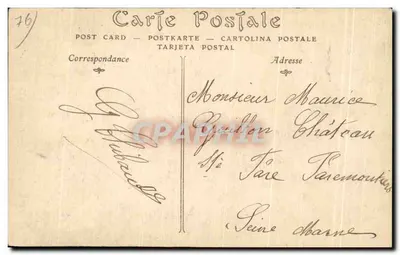 76
Carte Postale
POST CARD — POSTKARTE — CARTOLINA POSTALE
TARJETA POSTAL
Correspondance
Adresse
Monsieur Maurice
Château
Ste Fare Faremoutiers
Seine Marne